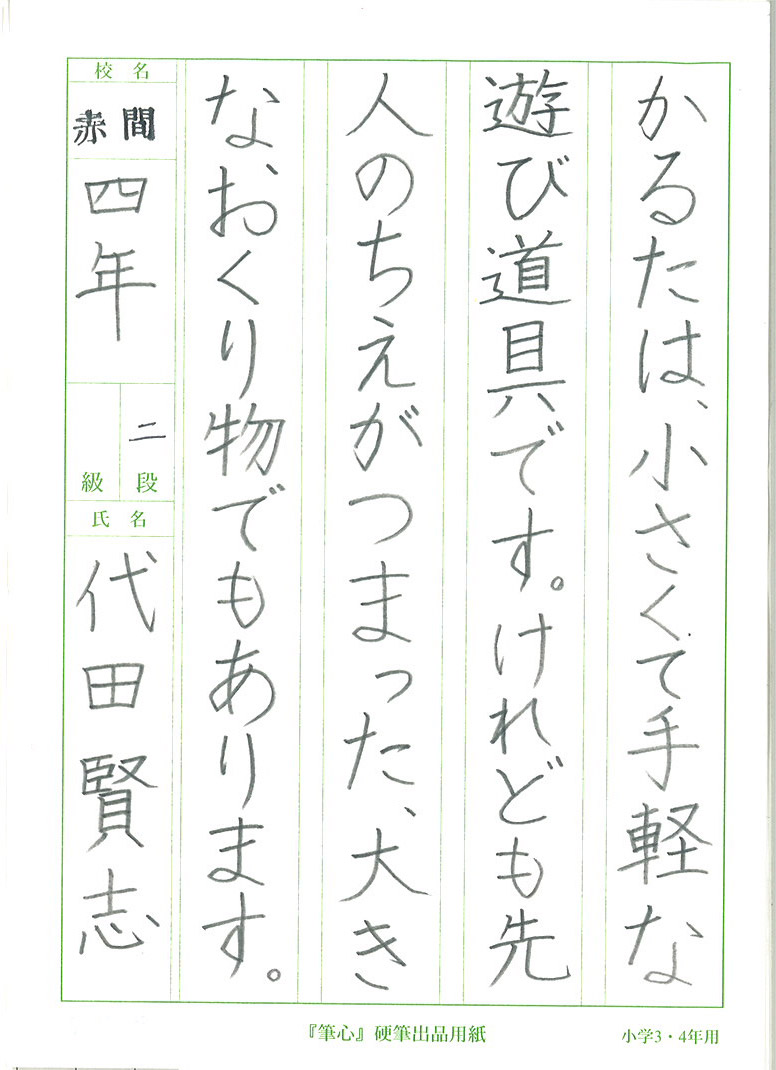 かるたは、小さくて手軽な
遊び道具です。けれども先
人のちえがつまった、大き
なおくり物でもあります。
校名
赤間
四年
二
級段
氏名
代田賢志
『筆心』硬筆出品用紙
小学3・4年用